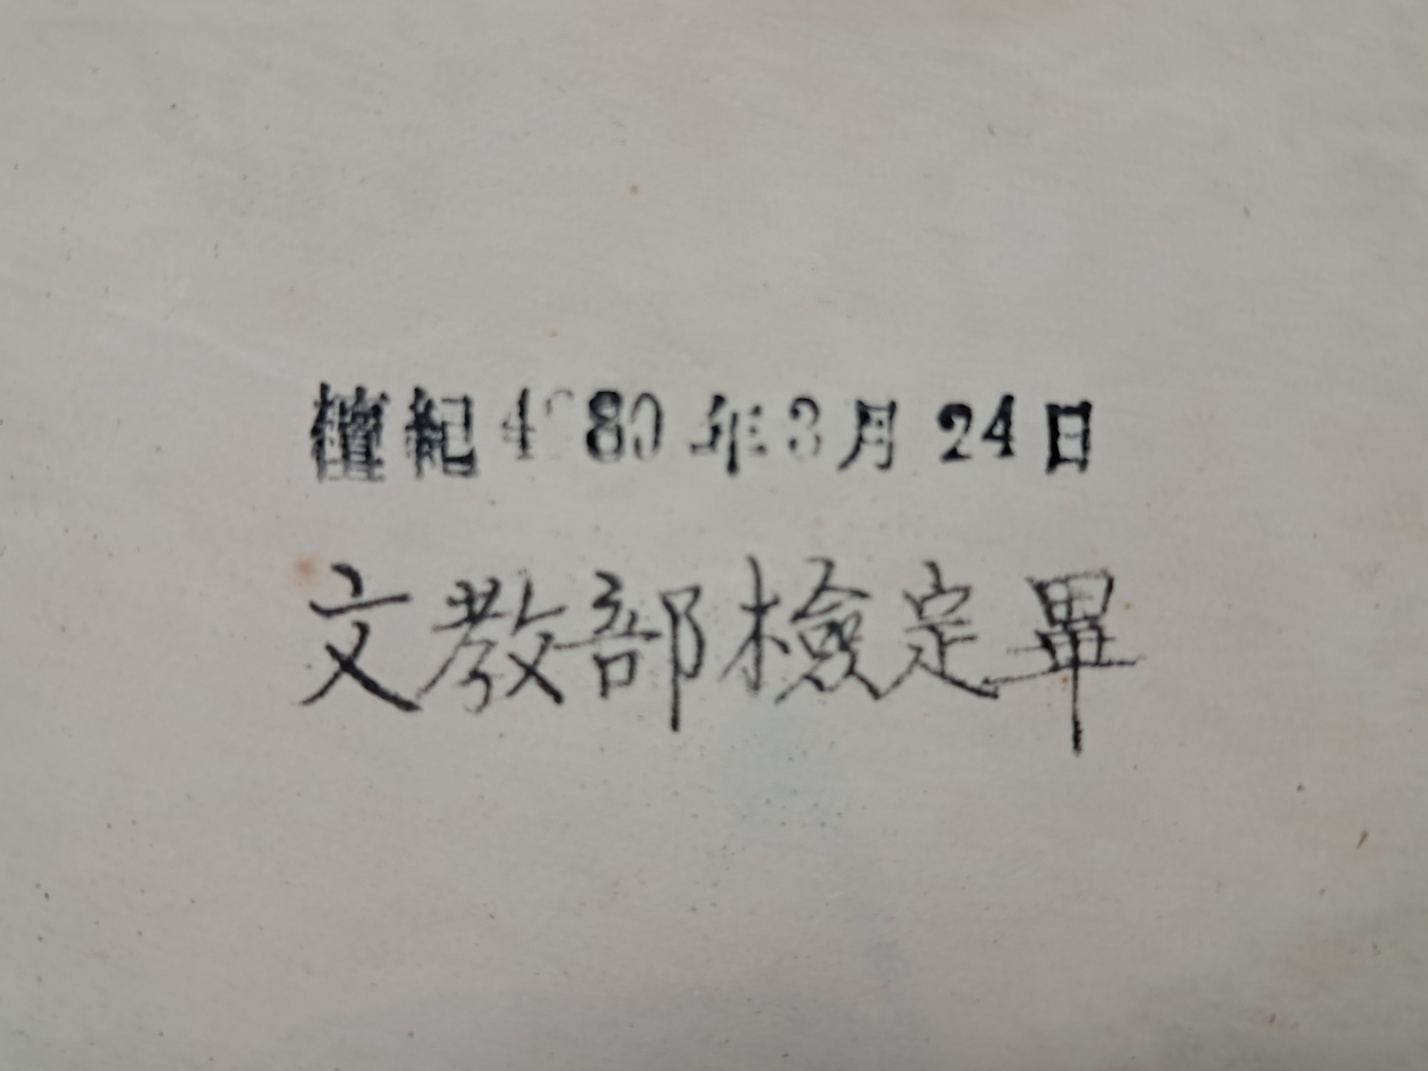 檀紀4280年3月24日
文教部檢定畢